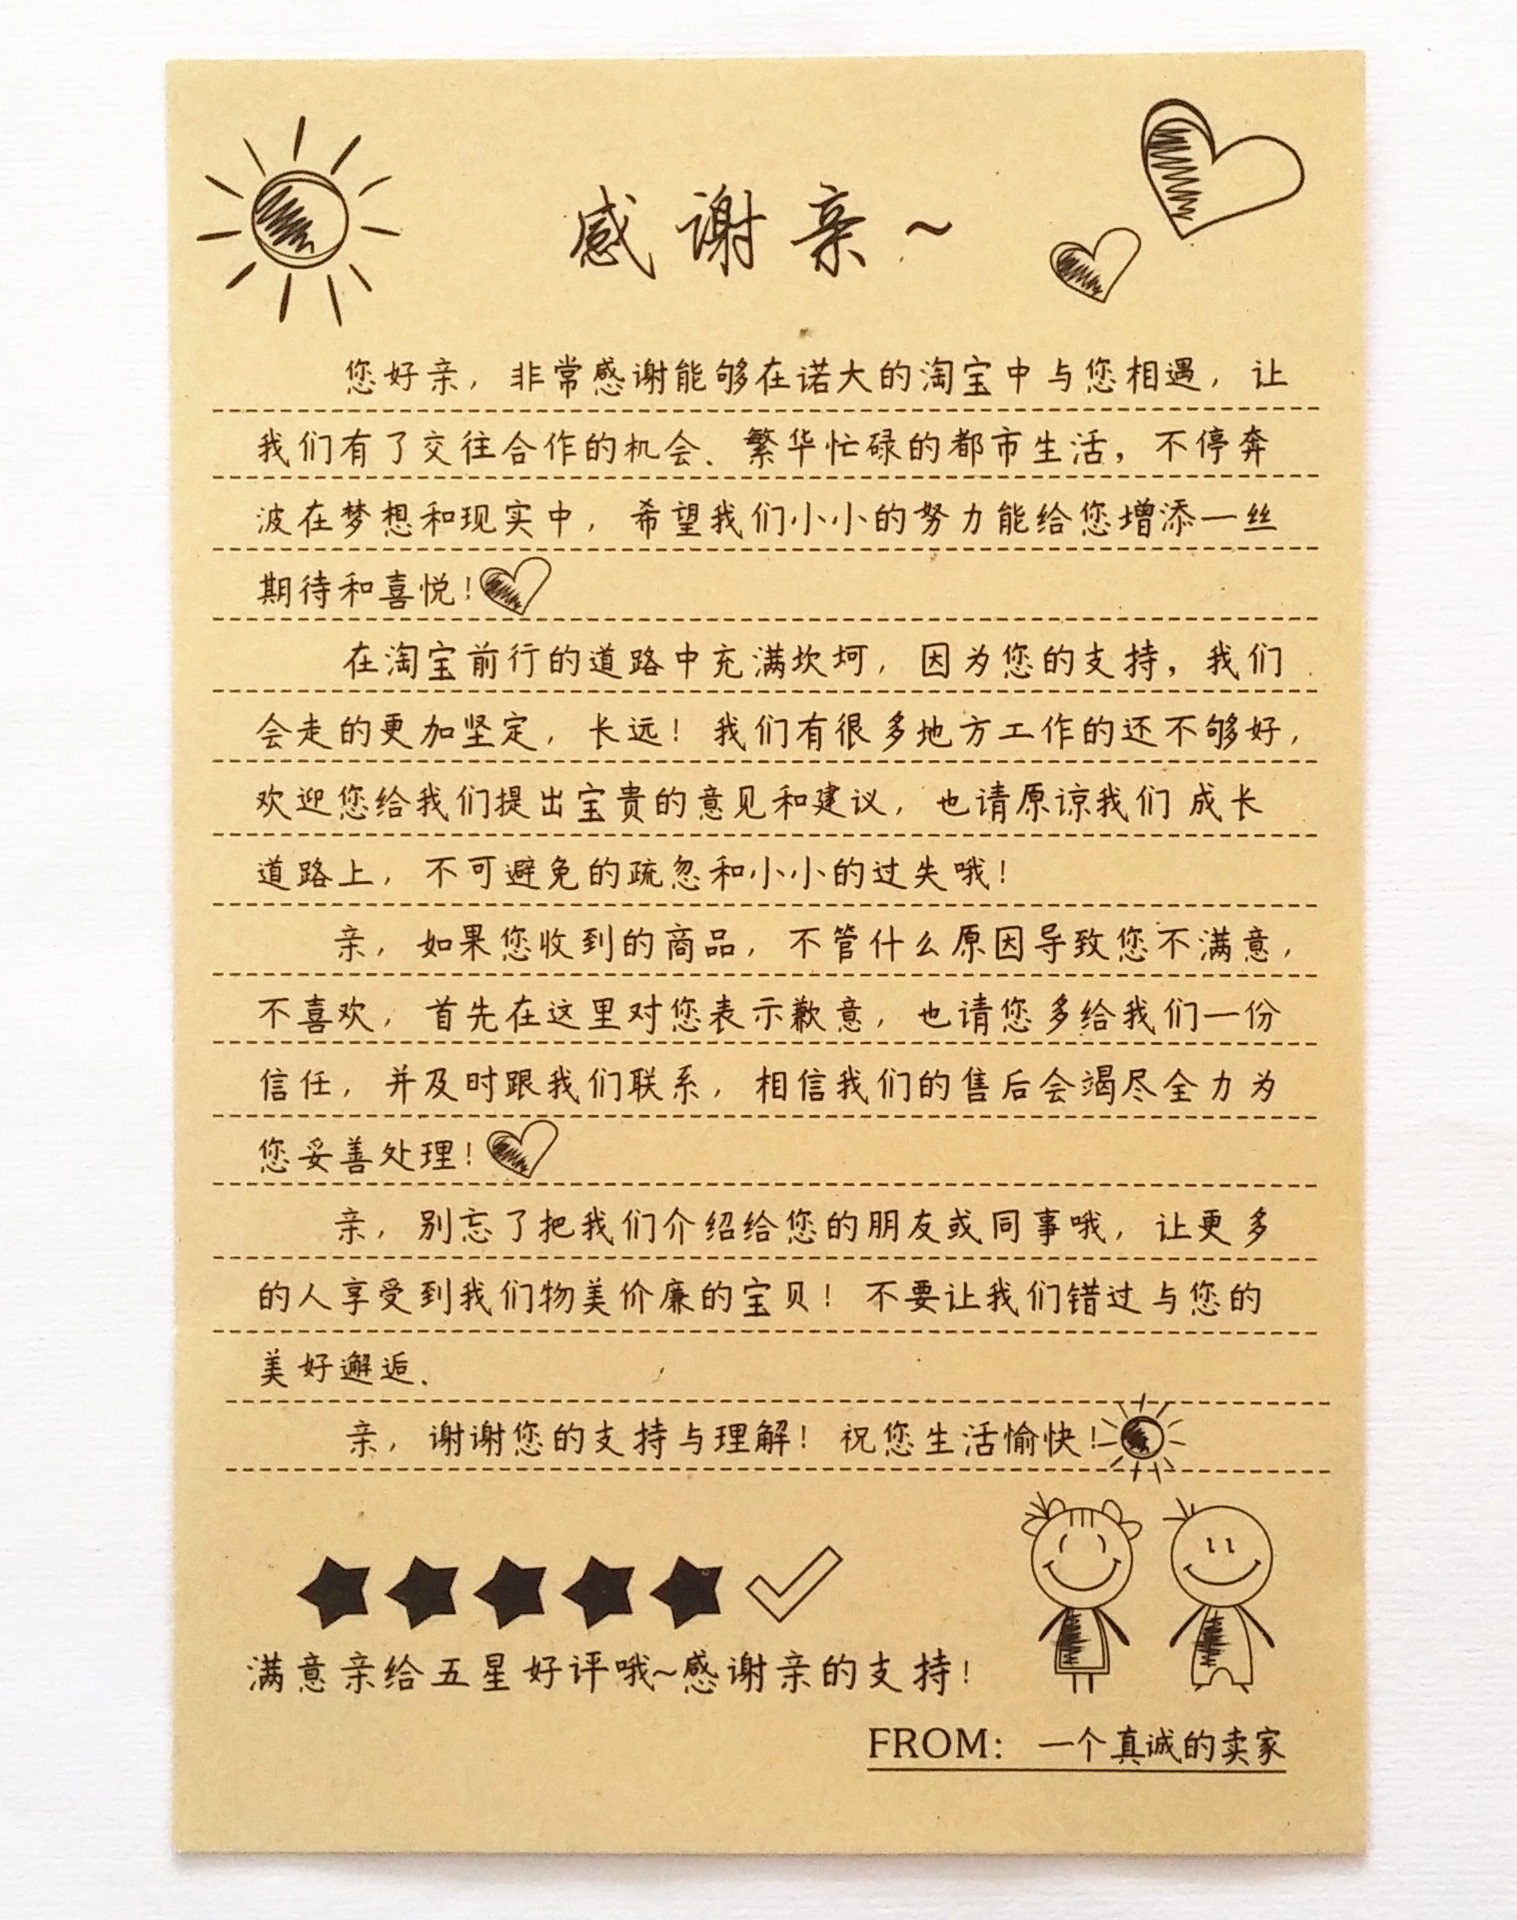 感谢亲~
您好亲，非常感谢能够在诺大的淘宝中与您相遇，让
我们有了交往合作的机会、繁华忙碌的都市生活，不停奔
波在梦想和现实中，希望我们小小的努力能给您增添一丝
期待和喜悦！
在淘宝前行的道路中充满坎坷，因为您的支持，我们
会走的更加坚定，长远！我们有很多地方工作的还不够好，
欢迎您给我们提出宝贵的意见和建议，也请原谅我们 成长
道路上，不可避免的疏忽和小小的过失哦！
亲，如果您收到的商品，不管什么原因导致您不满意，
不喜欢，首先在这里对您表示歉意，也请您多给我们一份
信任，并及时跟我们联系，相信我们的售后会竭尽全力为
您妥善处理！
亲，别忘了把我们介绍给您的朋友或同事哦，让更多
的人享受到我们物美价廉的宝贝！不要让我们错过与您的
美好邂逅、
亲，谢谢您的支持与理解！祝您生活愉快！
满意亲给五星好评哦~感谢亲的支持！
FROM：一个真诚的卖家